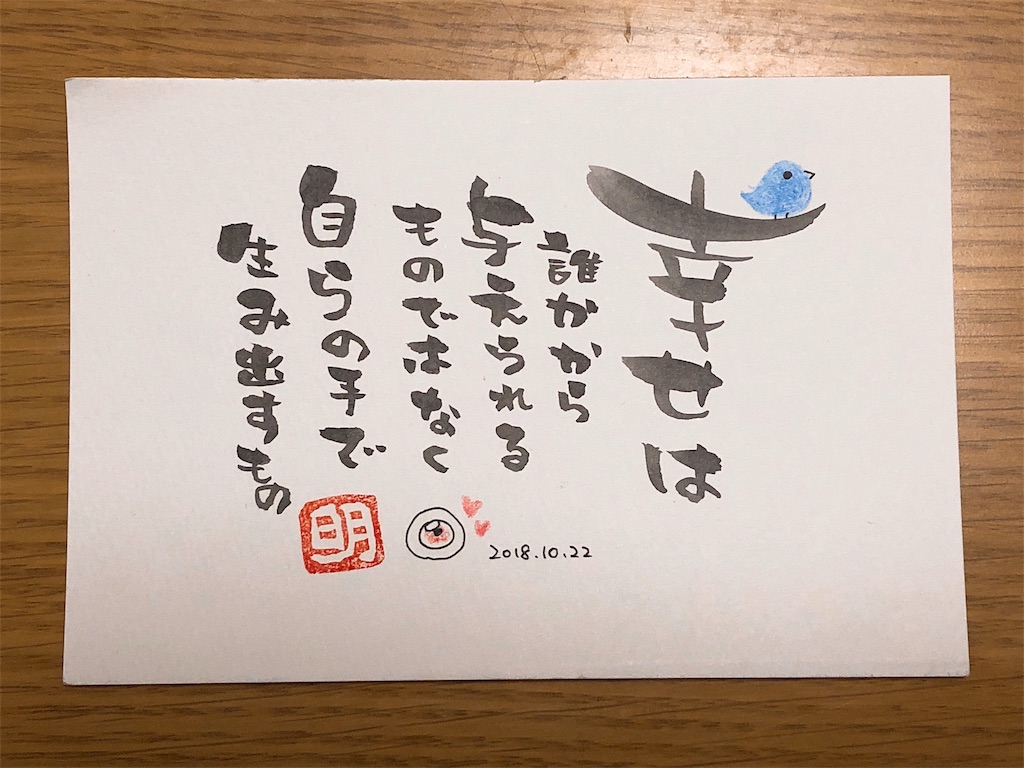 幸せは
誰かから
与えられる
ものではなく
自らの手で
生み出すもの
明
2018.10.22